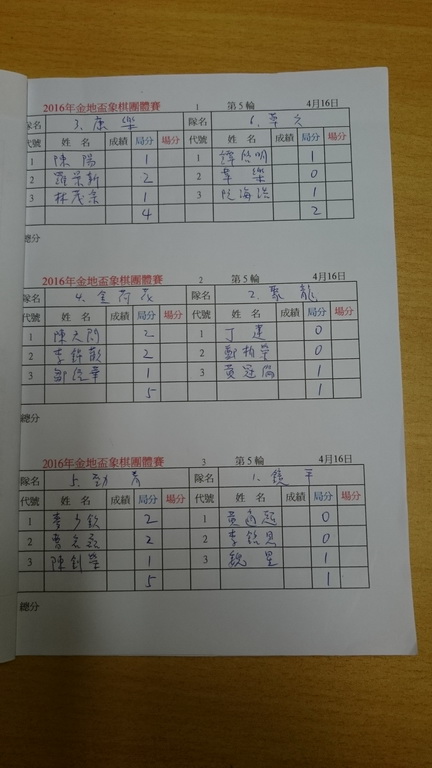 2016年金地盃象棋團體賽 1 第5輪 4月16日
隊名 3. 康樂 隊名 6.
代號 姓名 成績 局分 場分 代號 姓名 成績 局分 場分
1 陳陽 1 1 譚啓明 1
2 羅景新 2 2 0
3 林茂宗 1 3 1
4 2
總分
2016年金地盃象棋團體賽 2 第5輪 4月16日
隊名 4. 隊名 2. 聚龍
代號 姓名 成績 局分 場分 代號 姓名 成績 局分 場分
1 陳天問 2 1 丁連 0
2 李錦歡 2 2 鄭柏榮 0
3 1 3 1
5 1
總分
2016年金地盃象棋團體賽 3 第5輪 4月16日
隊名 5. 隊名 1. 鏡平
代號 姓名 成績 局分 場分 代號 姓名 成績 局分 場分
1 2 1 0
2 2 2 0
3 陳劍榮 1 3 魏星 1
5 1
總分